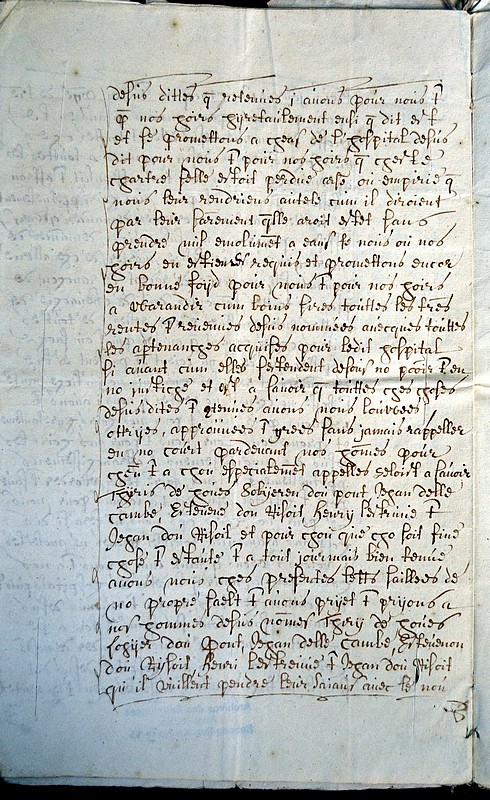 desus dittes q̄ retenues j auons pour nous t̄
q̄ nos hoirs hyretaulement ensi q̄ dit est
et se promettons a cheas de l'hospital desus
dit pour nous t̄ pour nos hoirs q̄ cheste
chartre selle estoit perdue arse ou empirie q̄
nous leur renderiens autele cum il diroient
par leur sarement q̄lle aroit estet sans
prendre nul emolumēt a eaus se nous ou nos
hoirs en estiens requis et promettons encor
en bonne foyd pour nous t̄ pour nos hoirs
a Warandir cum boins sires touttes les tres
rentes t̄ reuenues desus nommees auecques touttes
les aptenanches acquises pour ledit hospital
si auant cum elles sestendent desous no pooir t̄ en
no justiche et est a sauoir q̄ touttes ches choses
desus dites t̄ tenues auons nous louwees
ottryes, approuuees t̄ grees sans jamais rappeller
en no court pardeuant nos hōmes pour
cheu t̄ a chou especialement appelles seloist a sauoir
Thyris de houes dou pont Jehan delle
Cambe Esteuene dou Risoit Henry t̄
Jehan dou Risoit et pour chou que cho soit fine
chose t̄ estaule t̄ a toit jourmais bien tenue
auons nous ches presentes lettres saillees de
no propre saelt t̄ auons pryet t̄ pryons a
nos hommes desus nōmes Thiry de houes
dou Pont, Jehan delle Cambe, Esteuenon
dou Risoit, Henri t̄ Jehan dou Risoit
qu'il vuillent pendre leur saiaus auec le nou